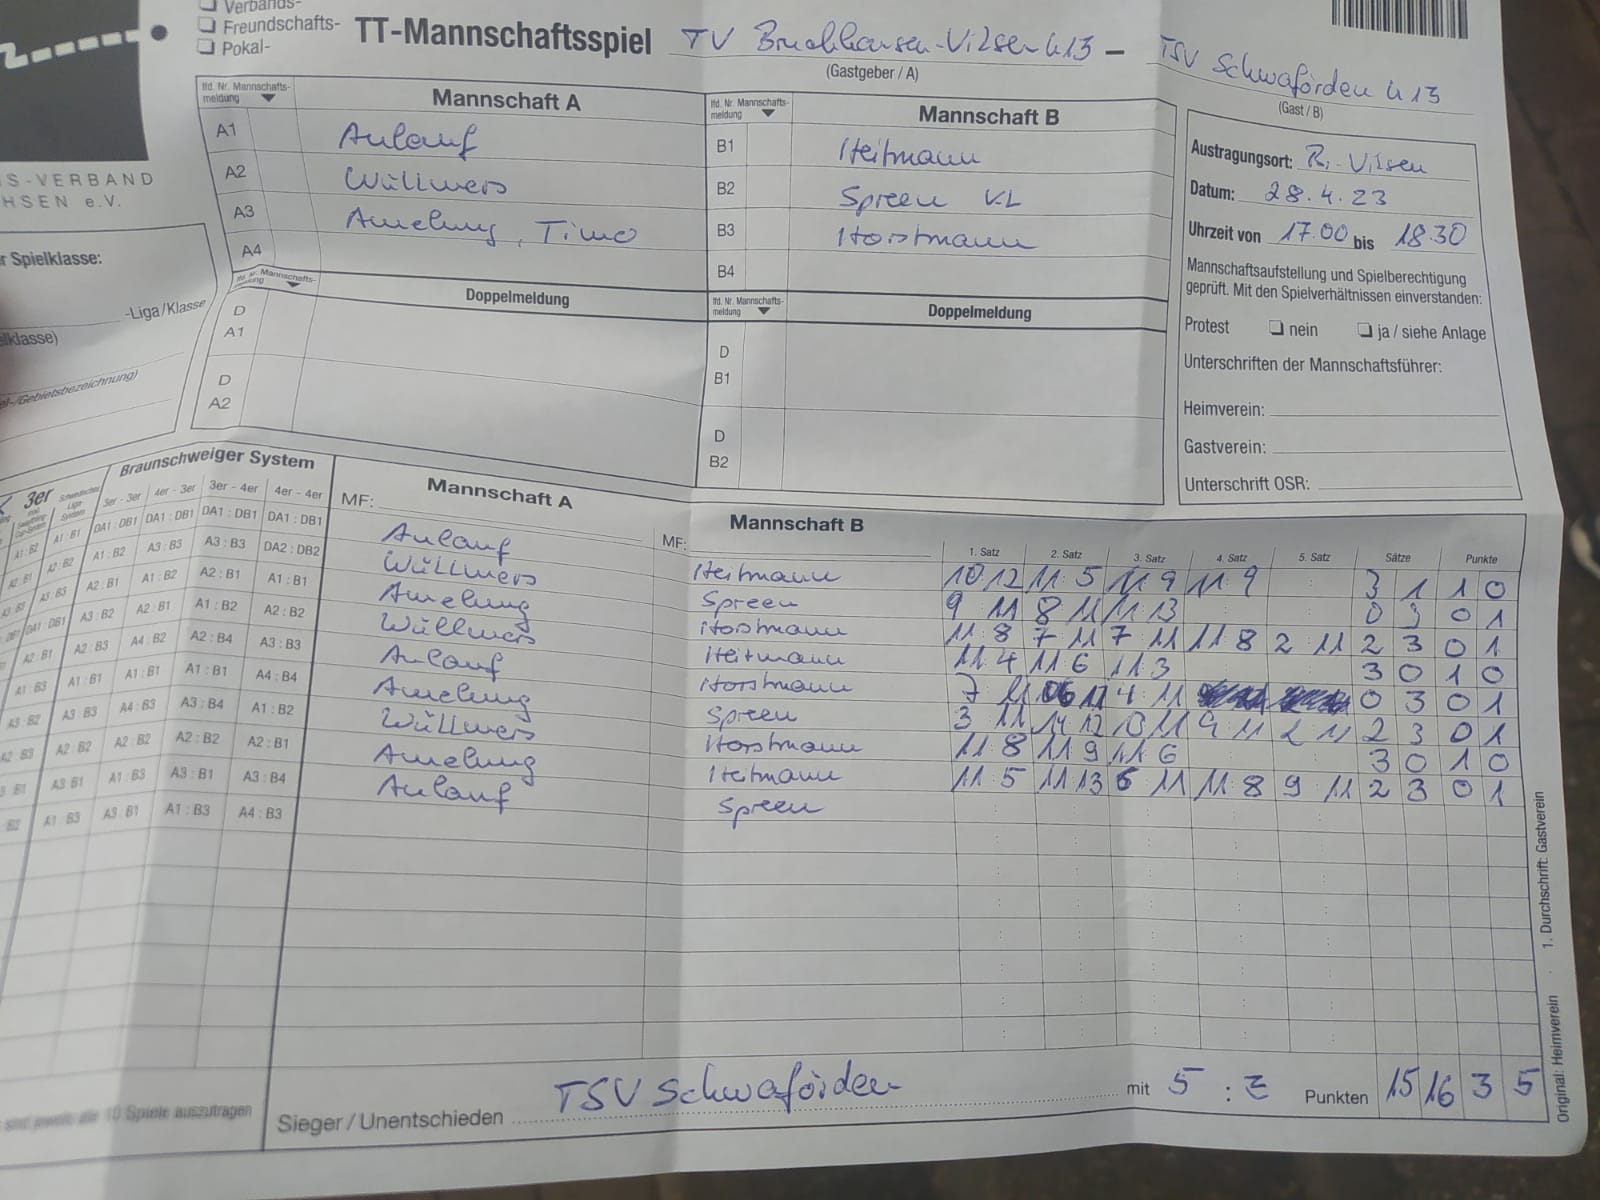 Verbands-
Freundschafts-
Pokal-
TT-Mannschaftsspiel TV Bruchhausen-Vilsen u13 – TSV Schwaförden u13
(Gastgeber / A) (Gast / B)
S-VERBAND
HSEN e.V.
r Spielklasse:
-Liga/Klasse
elklasse)
el-/Gebietsbezeichnung)
lfd. Nr. Mannschafts-meldung Mannschaft A lfd. Nr. Mannschafts-meldung Mannschaft B
A1 Aulauf B1 Heitmann
A2 Wüllmers B2 Spreen V.L
A3 Amelung, Timo B3 Horstmann
A4 B4
lfd. Nr. Mannschafts-meldung Doppelmeldung lfd. Nr. Mannschafts-meldung Doppelmeldung
D A1 D B1
D A2 D B2
Austragungsort: Br.-Vilsen
Datum: 28.4.23
Uhrzeit von 17.00 bis 18.30
Mannschaftsaufstellung und Spielberechtigung
geprüft. Mit den Spielverhältnissen einverstanden:
Protest nein ja / siehe Anlage
Unterschriften der Mannschaftsführer:
Heimverein:
Gastverein:
Unterschrift OSR:
Braunschweiger System
3er 3er - 3er 4er - 3er 3er - 4er 4er - 4er
MF: Mannschaft A MF: Mannschaft B
1. Satz 2. Satz 3. Satz 4. Satz 5. Satz Sätze Punkte
A1 : B2 A1 : B1 DA1 : DB1 DA1 : DB1 DA1 : DB1 DA1 : DB1 Aulauf Heitmann 10 12 11 5 11 9 11 9 3 1 1 0
A2 : B1 A2 : B2 A1 : B2 A3 : B3 A3 : B3 DA2 : DB2 Wüllmers Spreen 9 11 8 11 11 13 0 3 0 1
A3 : B3 A3 : B3 A2 : B1 A1 : B2 A2 : B1 A1 : B1 Amelung Horstmann 11 8 7 11 7 11 11 8 2 11 2 3 0 1
DA1 : DB1 A3 : B2 A2 : B1 A1 : B2 A2 : B2 Wüllmers Heitmann 11 4 11 6 11 3 3 0 1 0
A2 : B1 A2 : B3 A4 : B2 A2 : B4 A3 : B3 Aulauf Horstmann 7 11 12 4 11 0 3 0 1
A1 : B3 A1 : B1 A1 : B1 A1 : B1 A4 : B4 Amelung Spreen 3 11 14 12 11 9 11 2 11 2 3 0 1
A3 : B2 A3 : B3 A4 : B3 A3 : B4 A1 : B2 Wüllmers Horstmann 11 8 11 9 11 6 3 0 1 0
A2 : B3 A2 : B2 A2 : B2 A2 : B2 A2 : B1 Amelung Heitmann 11 5 11 13 6 11 11 8 9 11 2 3 0 1
A3 : B1 A1 : B3 A3 : B1 A3 : B4 Aulauf Spreen
A1 : B3 A3 : B1 A1 : B3 A4 : B3
10 Spiele auszutragen
Sieger / Unentschieden TSV Schwaförden mit 5 : Punkten 15 16 3 5
Original: Heimverein · 1. Durchschrift: Gastverein